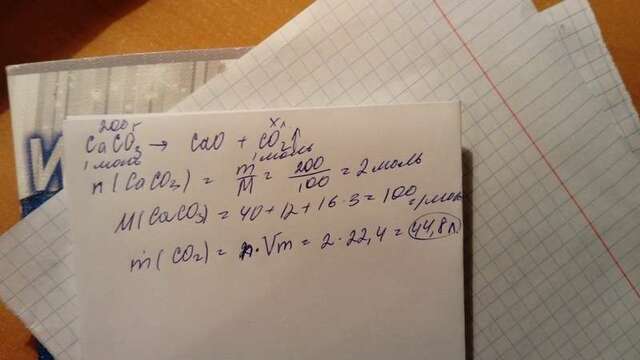 200г хл
CaCO₃ → CaO + CO₂↑
1 моль 1 моль
n(CaCO₃) = m/M = 200/100 = 2 моль
M(CaCO₃) = 40+12+16·3=100 г/моль
m(CO₂) = n·Vm = 2·22,4 = 44,8л